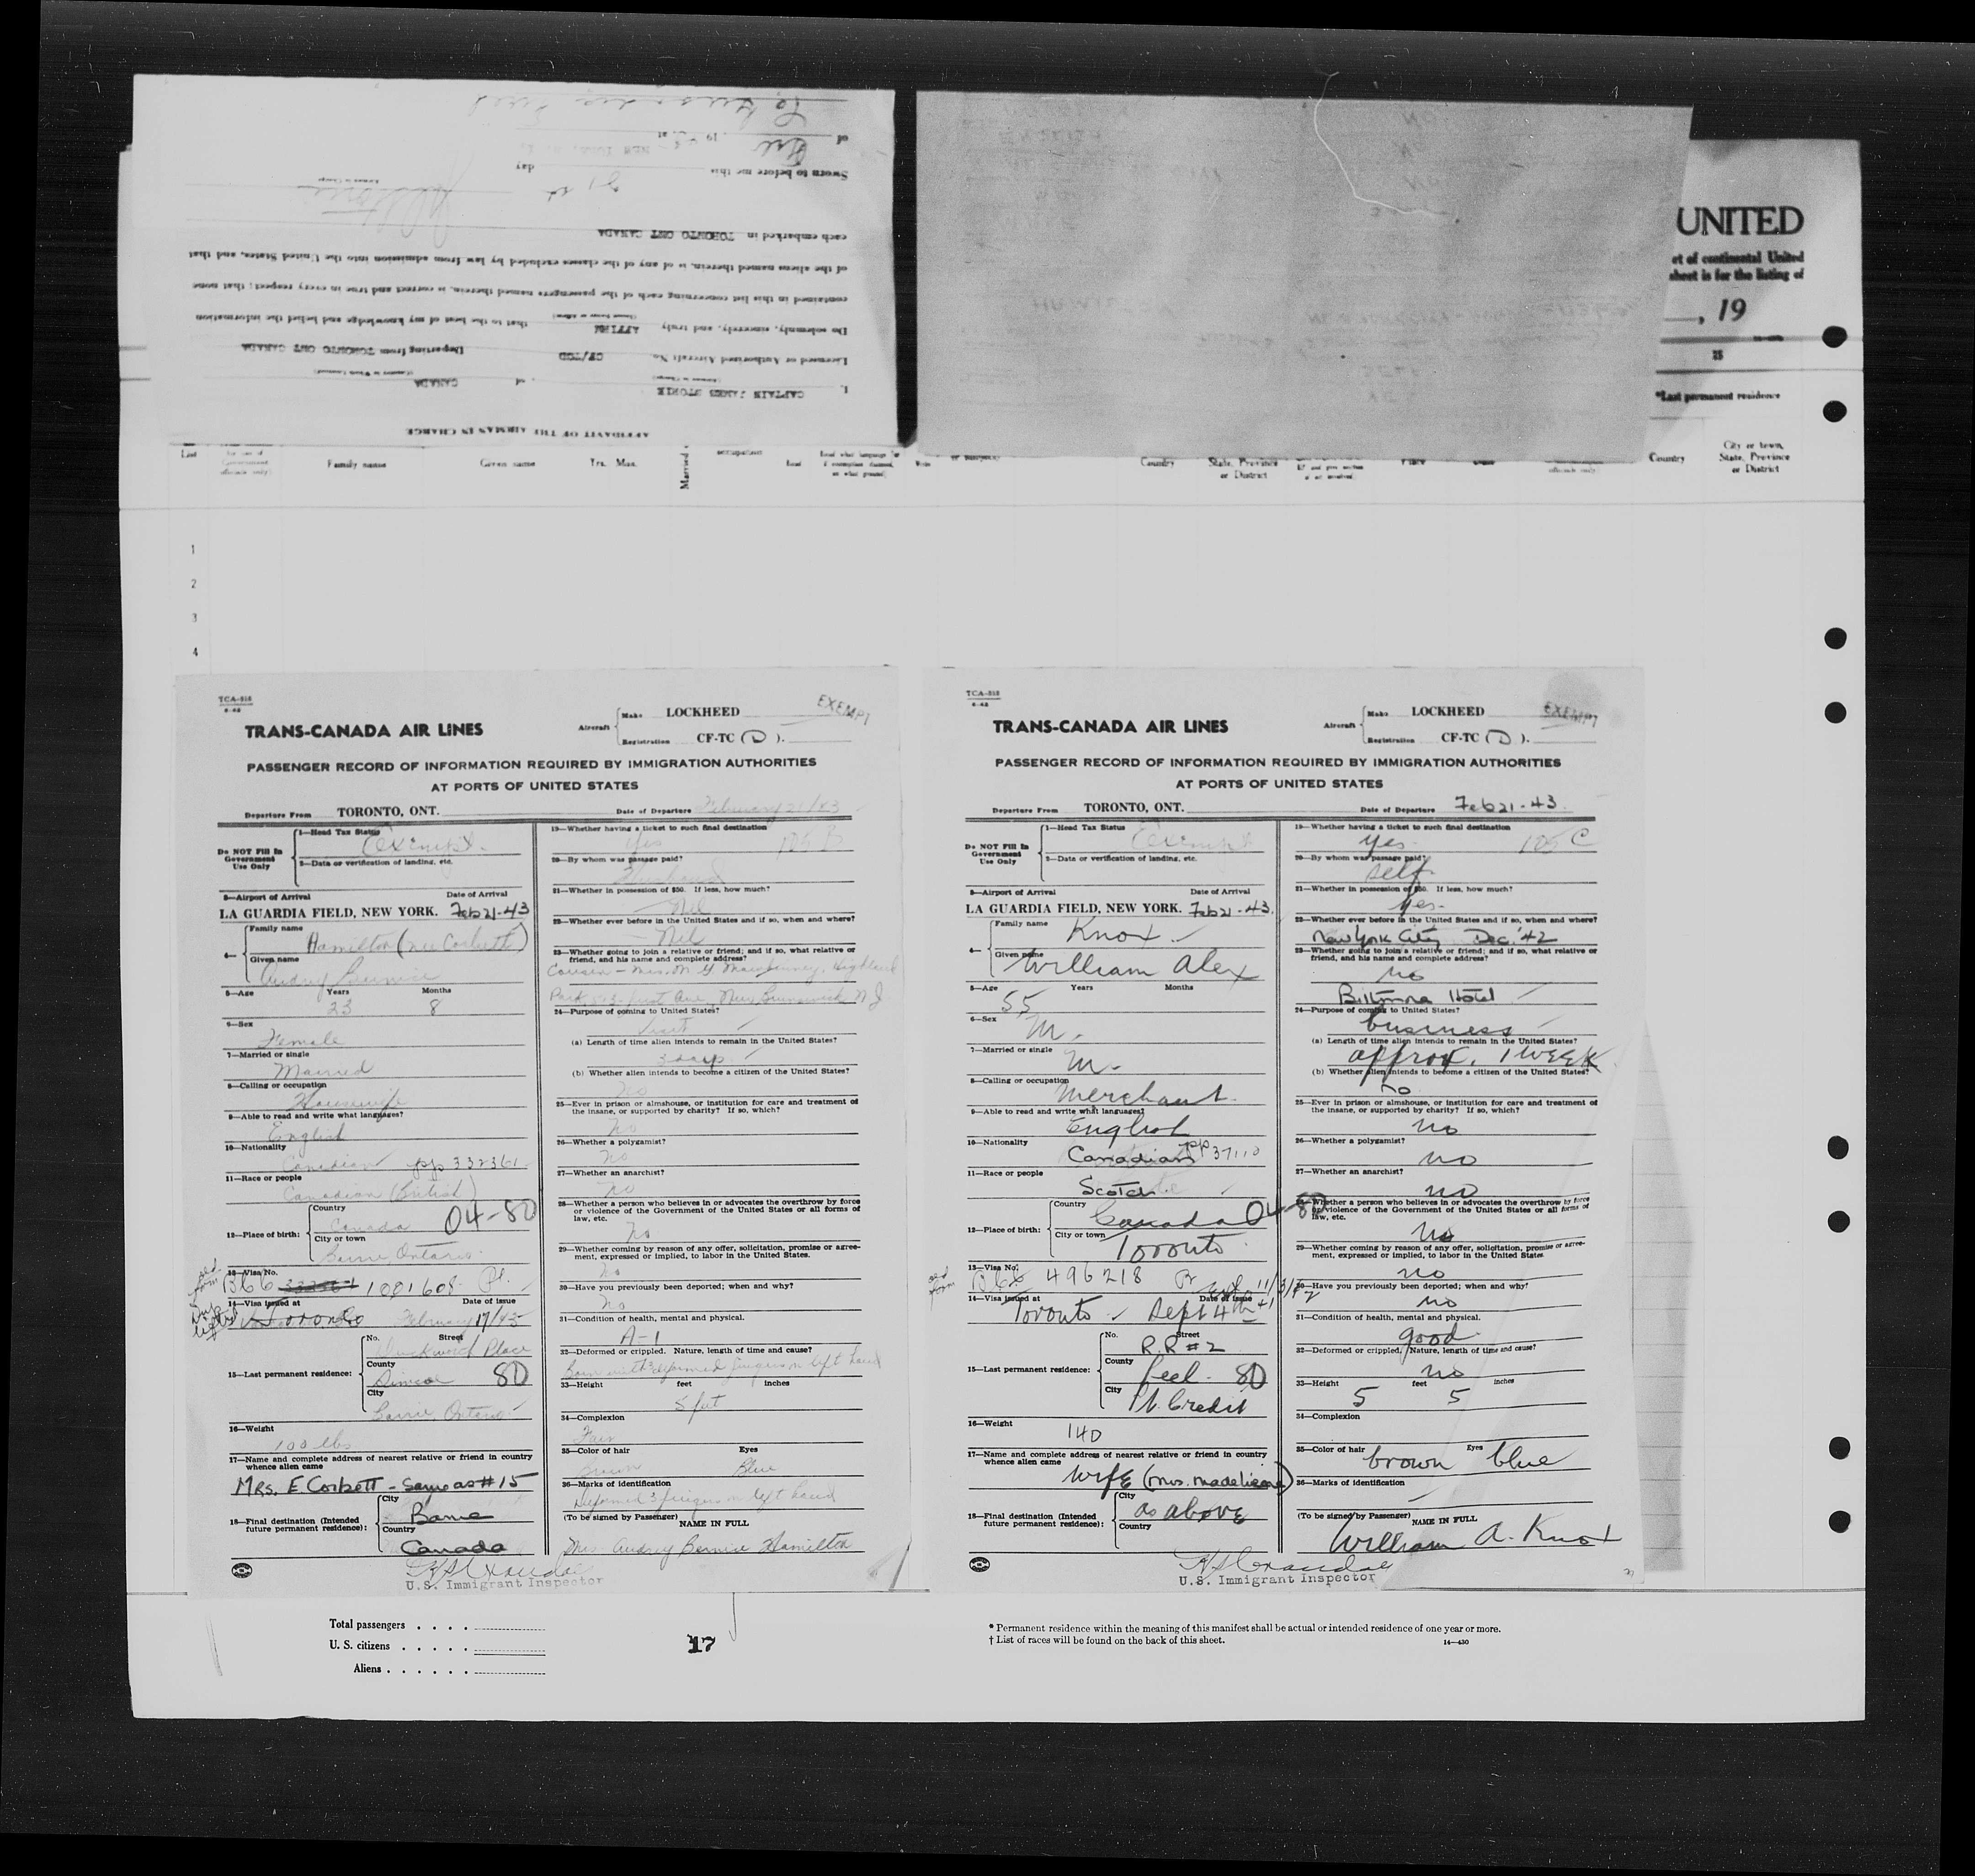 UNITED
rt of continental United
sheet is for the listing of
, 19
*Last permanent residence
AFFIDAVIT OF THE AIRMAN IN CHARGE
I, CAPTAIN JAMES STORIE of CANADA
Licensed or Authorized Aircraft No. CF/TCD Departing from TORONTO ONT CANADA
Do solemnly, sincerely, and truly AFFIRM that to the best of my knowledge and belief the information
contained in this list concerning each of the passengers named therein, is correct and true in every respect; that none
of the aliens named therein, is of any of the classes excluded by law from admission into the United States, and that
each embarked in TORONTO ONT CANADA
Sworn to before me this 21 st day
of 19 at
List
Family name Given name Yrs. Mos. Married occupation Read
Country State, Province or District Place
Country City or town, State, Province or District
1
2
3
4
TCA-515
TRANS-CANADA AIR LINES
Aircraft Make LOCKHEED
Registration CF-TC (D).
EXEMPT
PASSENGER RECORD OF INFORMATION REQUIRED BY IMMIGRATION AUTHORITIES
AT PORTS OF UNITED STATES
Departure From TORONTO, ONT. Date of Departure February 21/43
Do NOT Fill In Government Use Only
1—Head Tax Status Exempt.
2—Data or verification of landing, etc.
3—Airport of Arrival Date of Arrival
LA GUARDIA FIELD, NEW YORK. Feb 21-43
4— Family name Hamilton (nee Corbett)
Given name Audrey Bernice
5—Age Years 23 Months 8
6—Sex Female
7—Married or single Married
8—Calling or occupation Housewife
9—Able to read and write what languages? English
10—Nationality Canadian pp 332361
11—Race or people Canadian (British)
12—Place of birth: Country Canada 04-80
City or town Barrie Ontario.
13—Visa No. B66 1081608 Pt.
14—Visa issued at Toronto Date of issue February 17/43
15—Last permanent residence: No. Street Duckworth Place
County Simcoe 80
City Barrie Ontario
16—Weight 100 lbs
17—Name and complete address of nearest relative or friend in country whence alien came
Mrs. E. Corbett - same as #15
18—Final destination (Intended future permanent residence): City Barrie
Country Canada
19—Whether having a ticket to such final destination Yes 105 B
20—By whom was passage paid? Husband
21—Whether in possession of $50. If less, how much? Nil
22—Whether ever before in the United States and if so, when and where?
Nil
23—Whether going to join a relative or friend; and if so, what relative or friend, and his name and complete address?
Cousin - Mrs. M. G. Highland
Park First Ave, New Brunswick N J
24—Purpose of coming to United States? Visit
(a) Length of time alien intends to remain in the United States?
3 days
(b) Whether alien intends to become a citizen of the United States?
No
25—Ever in prison or almshouse, or institution for care and treatment of the insane, or supported by charity? If so, which?
No
26—Whether a polygamist?
No
27—Whether an anarchist?
No
28—Whether a person who believes in or advocates the overthrow by force or violence of the Government of the United States or all forms of law, etc.
No
29—Whether coming by reason of any offer, solicitation, promise or agreement, expressed or implied, to labor in the United States.
No
30—Have you previously been deported; when and why?
No
31—Condition of health, mental and physical.
A-1
32—Deformed or crippled. Nature, length of time and cause?
Born with 3 deformed fingers on left hand
33—Height feet inches
5 feet
34—Complexion
Fair
35—Color of hair Eyes
Brown Blue
36—Marks of identification
Deformed 3 fingers on left hand
(To be signed by Passenger) NAME IN FULL
Mrs Audrey Bernice Hamilton
U.S. Immigrant Inspector
TCA-515
TRANS-CANADA AIR LINES
Aircraft Make LOCKHEED
Registration CF-TC (D).
EXEMPT
PASSENGER RECORD OF INFORMATION REQUIRED BY IMMIGRATION AUTHORITIES
AT PORTS OF UNITED STATES
Departure From TORONTO, ONT. Date of Departure Feb 21-43.
Do NOT Fill In Government Use Only
1—Head Tax Status Exempt
2—Data or verification of landing, etc.
3—Airport of Arrival Date of Arrival
LA GUARDIA FIELD, NEW YORK. Feb 21-43.
4— Family name Knox
Given name William Alex
5—Age Years Months
55
6—Sex M.
7—Married or single M.
8—Calling or occupation Merchant.
9—Able to read and write what languages? English
10—Nationality Canadian pp 37110
11—Race or people Scotch
12—Place of birth: Country Canada 04-80
City or town Toronto
13—Visa No. B66 496218
14—Visa issued at Toronto Date of issue Sept 4th 41
15—Last permanent residence: No. Street R.R #2
County Peel - 80
City Pt. Credit
16—Weight 140
17—Name and complete address of nearest relative or friend in country whence alien came
Wife (Mrs. Madeliene)
18—Final destination (Intended future permanent residence): City as above
Country
19—Whether having a ticket to such final destination
yes. 105 C
20—By whom was passage paid?
Self
21—Whether in possession of $50. If less, how much?
yes.
22—Whether ever before in the United States and if so, when and where?
New York City Dec. '42
23—Whether going to join a relative or friend; and if so, what relative or friend, and his name and complete address?
no
Biltmore Hotel
24—Purpose of coming to United States?
business
(a) Length of time alien intends to remain in the United States?
approx. 1 week
(b) Whether alien intends to become a citizen of the United States?
no
25—Ever in prison or almshouse, or institution for care and treatment of the insane, or supported by charity? If so, which?
no
26—Whether a polygamist?
no
27—Whether an anarchist?
no
28—Whether a person who believes in or advocates the overthrow by force or violence of the Government of the United States or all forms of law, etc.
no
29—Whether coming by reason of any offer, solicitation, promise or agreement, expressed or implied, to labor in the United States.
no
30—Have you previously been deported; when and why?
no
31—Condition of health, mental and physical.
good.
32—Deformed or crippled. Nature, length of time and cause?
no
33—Height feet inches
5 5
34—Complexion
35—Color of hair Eyes
brown blue
36—Marks of identification
(To be signed by Passenger) NAME IN FULL
William A. Knox
U.S. Immigrant Inspector
Total passengers . . . .
U. S. citizens . . . . .
Aliens . . . . . .
17
* Permanent residence within the meaning of this manifest shall be actual or intended residence of one year or more.
† List of races will be found on the back of this sheet. 14—430